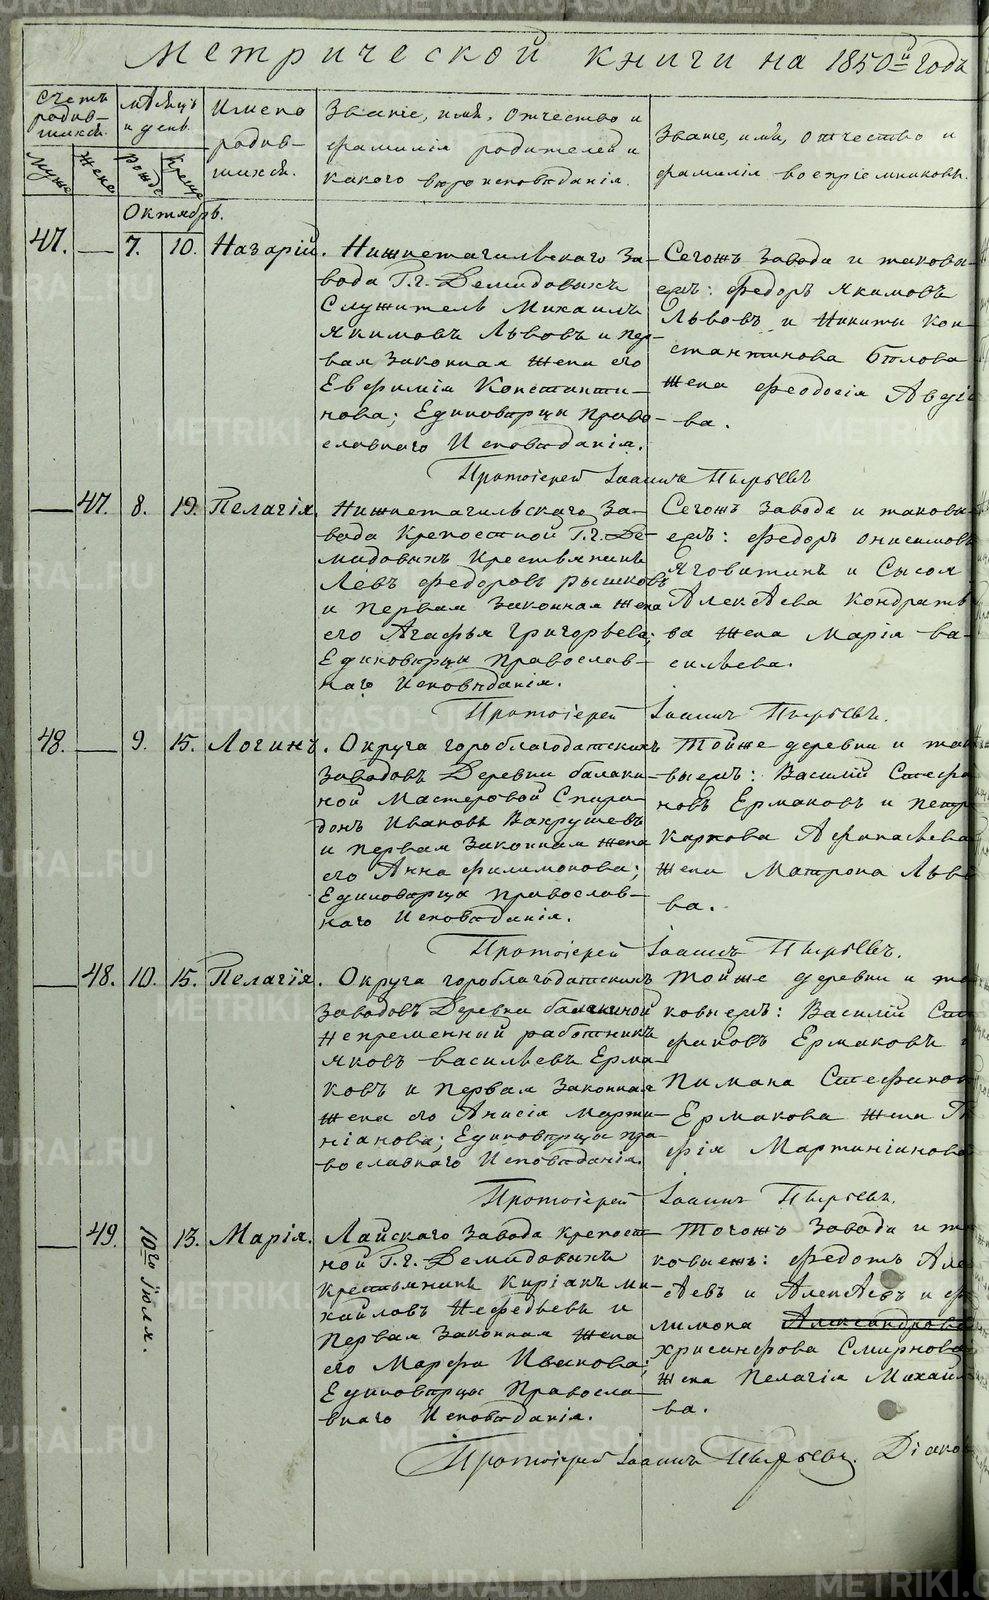 Метрической книги на 1850й годъ
Счетъ родив-
шихся.
Муж.
Жен.
Мѣсяцъ
и день.
Рожд.
Крещ.
Имена
родив-
шихся.
Званіе, имя, отчество и
фамилія родителей и
какого вѣроисповѣданія.
Званіе, имя, отчество и
фамилія воспріемниковъ.
Октябрь.
47. — 7. 10. Назарій.
Нижнетагильскаго За-
вода Г.г. Демидовыхъ
Служитель Михаилъ
Якимовъ Львовъ и пер-
вая законная жена его
Евфимія Константи-
нова; Единоверцы право-
славнаго Исповѣданія.
Сегожъ завода и таковы-
еже: Федоръ Якимовъ
Львовъ и Никиты Кон-
стантинова Бѣлова
жена Феодосія Авдѣе
ва.
Протоіерей Іоаннъ Пырьевъ
— 47. 8. 19. Пелагія.
Нижнетагильскаго За-
вода Крепостной Г.г. Де-
мидовыхъ Крестьянинъ
Левъ Федоровъ Рышковъ
и первая законная жена
его Агафья Григорьева;
Единоверцы Православ-
наго Исповѣданія.
Сегожъ Завода и таковы-
еже: Федоръ Онисимовъ
Яговитинъ и Сысоя
Алексѣева Кондрать
ва жена Марія Ва-
сильева.
Протоіерей Іоаннъ Пырьевъ.
48. — 9. 15. Логинъ.
Округа гороблагодатскихъ
Заводовъ Деревни балаки-
ной Мастеровой Спири-
донъ Ивановъ Вахрушевъ
и первая законная жена
его Анна Филимонова;
Единоверцы православ-
наго Исповѣданія.
Тойже деревни и тако
выеже: Василій Стефа
новъ Ермаковъ и Петра
Карпова Афанасьева
жена Матрона Льво
ва.
Протоіерей Іоаннъ Пырьевъ.
— 48. 10. 15. Пелагія.
Округа гороблагодатскихъ
Заводовъ Деревни балакиной
Непременный работникъ
Яковъ Васильевъ Ерма-
ковъ и первая Законная
жена его Анисія Марти-
ніанова; Единоверцы пра-
вославнаго Исповѣданія.
Тойже деревни и та
ковыеже: Василій Сте
фановъ Ермаковъ и
Пимана Стефанова
Ермакова жена
фія Мартиніанова
Протоіерей Іоаннъ Пырьевъ.
— 49. 10го Іюля. 13. Марія.
Лайскаго Завода крепост-
ной Г.г. Демидовыхъ
крестьянинъ Киріакъ Ми-
хайловъ Нефедьевъ и
Первая Законная жена
его Марфа Иванова;
Единоверцы Правосла-
внаго Исповѣданія.
Тогожъ Завода и та
ковыежъ: Федотъ Алек
сѣевъ и Алексѣевъ и Фи
лимона Александрова
Хрисанфова Смирнова
жена Пелагія Михайло
ва.
Протоіерей Іоаннъ Пырьевъ. Діаконъ